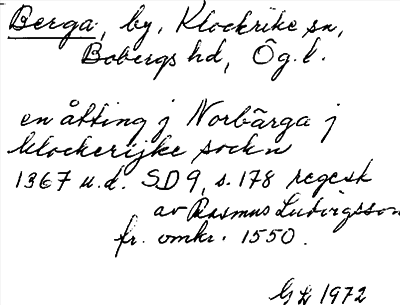 Berga, by, Klockrike sn,
Bobergs hd, Ög. l.
en åtting j Norbärga j
klockerijke sockn
1367 u.d. SD 9, s. 178 regesk
av Rasmus Ludvigsson
fr. omkr. 1550.
G L 1972